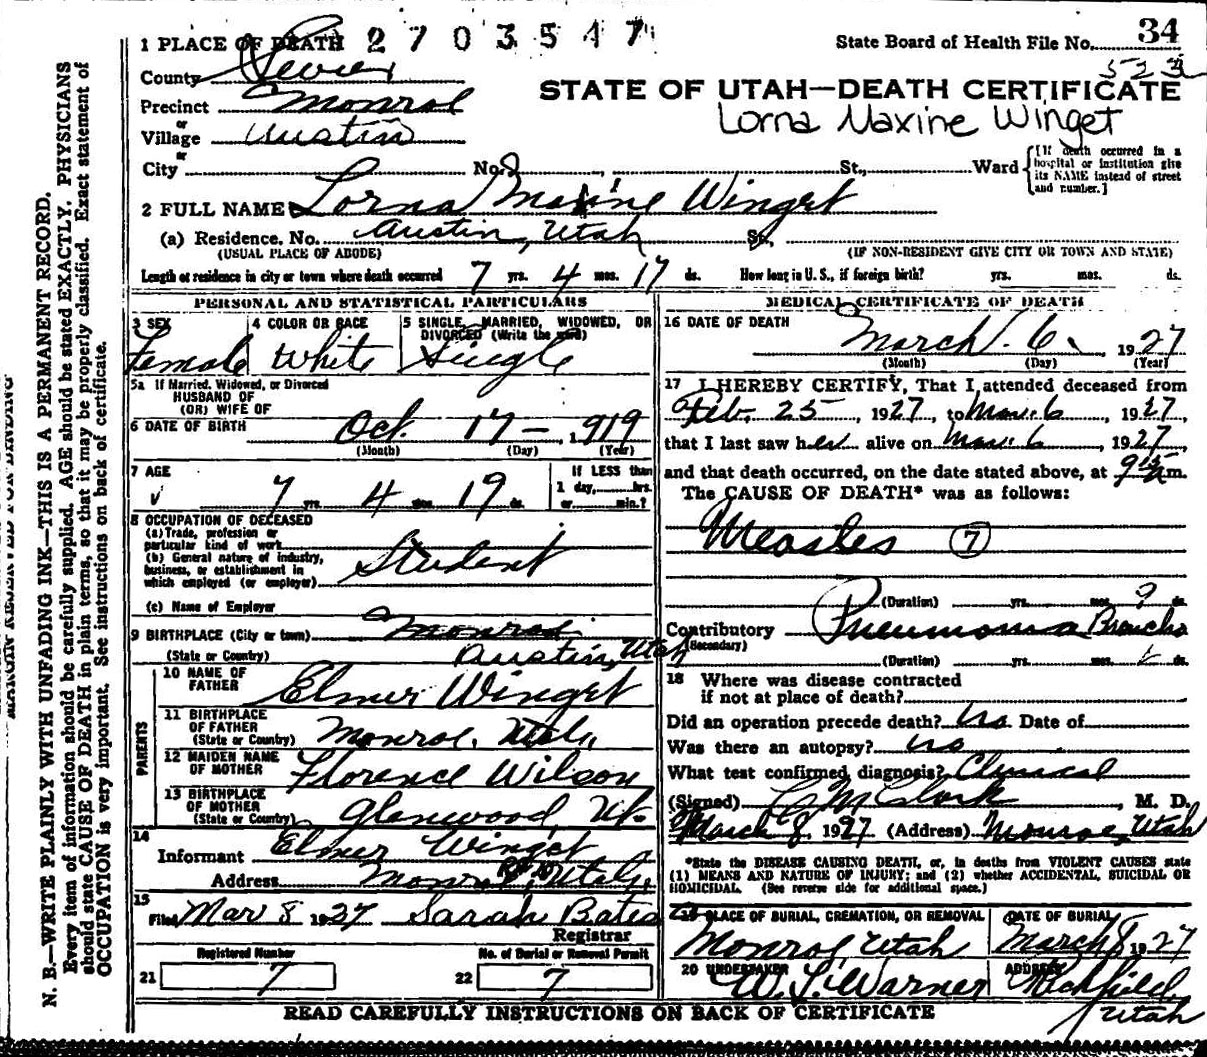 1 PLACE OF DEATH 2703547 State Board of Health File No. 34
County Sevier 523
Precinct Monroe STATE OF UTAH—DEATH CERTIFICATE
or
Village Austin Lorna Maxine Winget
or
City No. St., Ward [If death occurred in a hospital or institution give its NAME instead of street and number.]
2 FULL NAME Lorna Maxine Winget
(a) Residence. No. Austin, Utah St.
(USUAL PLACE OF ABODE) (IF NON-RESIDENT GIVE CITY OR TOWN AND STATE)
Length of residence in city or town where death occurred 7 yrs. 4 mos. 17 ds. How long in U. S., if foreign birth? yrs. mos. ds.
PERSONAL AND STATISTICAL PARTICULARS
3 SEX 4 COLOR OR RACE 5 SINGLE, MARRIED, WIDOWED, OR DIVORCED (Write the word)
Female White Single
5a If Married, Widowed, or Divorced
HUSBAND OF
(OR) WIFE OF
6 DATE OF BIRTH Oct. 17 - 1919
(Month) (Day) (Year)
7 AGE If LESS than
7 yrs. 4 mos. 19 ds. 1 day, hrs.
or min.?
8 OCCUPATION OF DECEASED
(a) Trade, profession or
particular kind of work
(b) General nature of industry,
business, or establishment in
which employed (or employer) Student
(c) Name of Employer
9 BIRTHPLACE (City or town) Monroe
(State or Country) Austin, Utah
PARENTS
10 NAME OF FATHER Elmer Winget
11 BIRTHPLACE OF FATHER (State or Country) Monroe, Utah
12 MAIDEN NAME OF MOTHER Florence Wilson
13 BIRTHPLACE OF MOTHER (State or Country) Glenwood, Ut.
14
Informant Elmer Winget
Address Monroe, Utah
15
Filed Mar 8 1927 Sarah Bates
Registrar
Registered Number No. of Burial or Removal Permit
21 7 22 7
MEDICAL CERTIFICATE OF DEATH
16 DATE OF DEATH
March 6, 1927
(Month) (Day) (Year)
17 I HEREBY CERTIFY, That I attended deceased from
Feb. 25, 1927, to Mar. 6, 1927,
that I last saw her alive on Mar. 6, 1927,
and that death occurred, on the date stated above, at m.
The CAUSE OF DEATH* was as follows:
Measles 7
(Duration) yrs. mos. 9 ds.
Contributory Pneumonia Broncho
(Secondary)
(Duration) yrs. mos. ds.
18 Where was disease contracted
if not at place of death?
Did an operation precede death? No Date of
Was there an autopsy? no
What test confirmed diagnosis? Clinical
(Signed) C M Clark, M. D.
March 8, 1927 (Address) Monroe, Utah
*State the DISEASE CAUSING DEATH, or, in deaths from VIOLENT CAUSES state
(1) MEANS AND NATURE OF INJURY; and (2) whether ACCIDENTAL, SUICIDAL OR
HOMICIDAL. (See reverse side for additional space.)
19 PLACE OF BURIAL, CREMATION, OR REMOVAL DATE OF BURIAL
Monroe, Utah March 8 1927
20 UNDERTAKER ADDRESS
W. S. Warner Richfield, Utah
READ CAREFULLY INSTRUCTIONS ON BACK OF CERTIFICATE
MARGIN RESERVED FOR BINDING
N. B.—WRITE PLAINLY WITH UNFADING INK—THIS IS A PERMANENT RECORD.
Every item of information should be carefully supplied. AGE should be stated EXACTLY. PHYSICIANS
should state CAUSE OF DEATH in plain terms, so that it may be properly classified. Exact statement of
OCCUPATION is very important. See instructions on back of certificate.